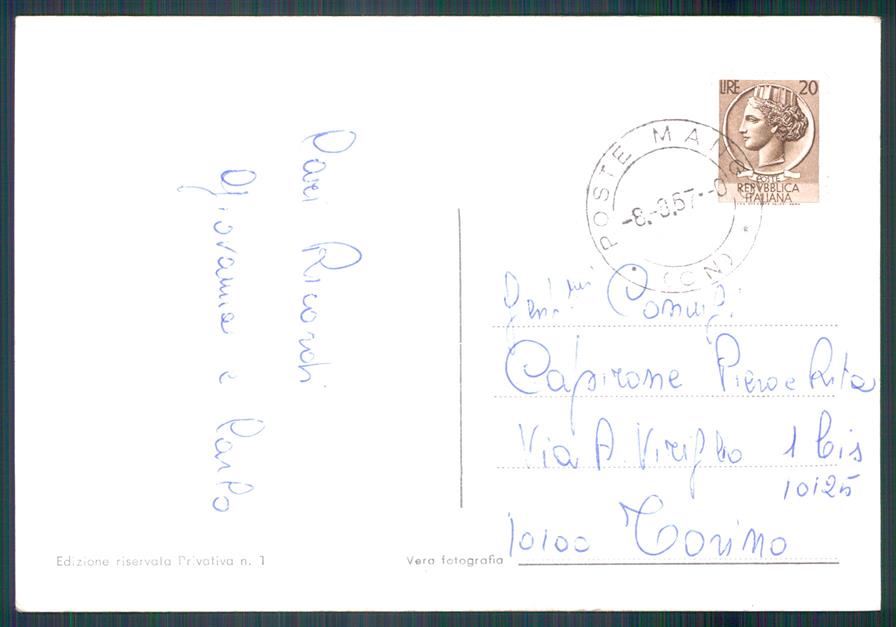 Cari Ricordi
Giovanna e Carlo
LIRE 20
POSTE
REPVBBLICA
ITALIANA
POSTE
(CN)
Gent.mi Coniugi
Capirone Piero e Rita
Via A. Viriglio 1 bis
10125
10100 Torino
Edizione riservata Privativa n. 1
Vera fotografia